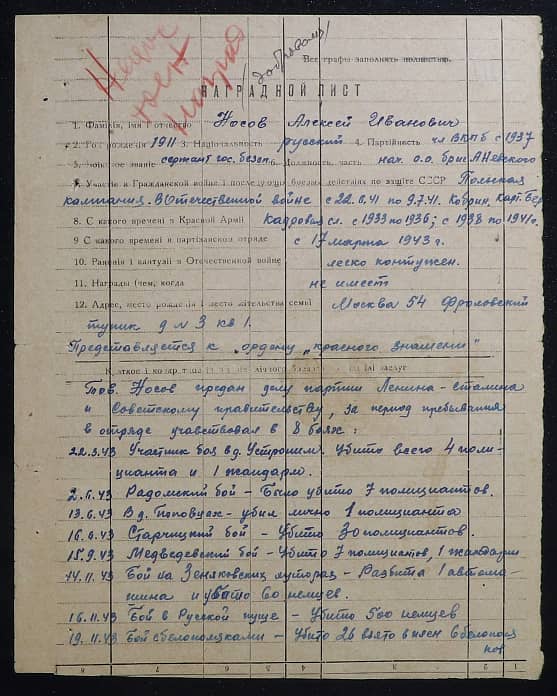 Все графы заполнять полностью.
НАГРАДНОЙ ЛИСТ
1. Фамилия, имя и отчество Носов Алексей Иванович
2. Год рождения 1911 3. Национальность русский 4. Партийность чл ВКПб с 1937
5. Воинское звание сержант гос. безоп. 6. Должность, часть нач. о.о. бриг А Невского
7. Участие в Гражданской войне и последующих боевых действиях по защите СССР Польская
кампания. В Отечественной войне с 22.6.41 по 9.7.41. Кобрин, Карт. Бер
8. С какого времени в Красной Армии Кадровая сл. с 1933 по 1936; с 1938 по 1941г.
9 С какого времени в партизанском отряде с 17 марта 1943 г.
10. Ранения и контузии в Отечественной войне легко контужен.
11. Награды (чем, когда не имеет
12. Адрес, место рождения и место жительства семьи Москва 54 Фроловский
тупик д № 3 кв 1.
Представляется к „ордену „красного знамени"
Тов. Носов предан делу партии Ленина - Сталина
и Советскому правительству, за период пребывания
в отряде участвовал в 8 боях:
22.3.43 Участник боя в д. Устронь. Убито всего 4 поли-
цианта и 1 жандарм.
2.6.43 Радомский бой - Было убито 7 полициантов.
13.6.43 В д. - убил лично 1 полицианта
16.8.43 Старчицкий бой - Убито 30 полициантов.
15.9.43 Медведевский бой - Убито 7 полициантов, 1 жандарм
14.11.43 Бой на Зеняковских хуторах - Разбита 1 автома
шина и убито 60 немцев.
16.11.43 Бой в Русской пуще - Убито 500 немцев
19.11.43 Бой с белополяками - Убито 26 взято в плен 6 белополя
ков
8 7 6 5 4 3 2 1